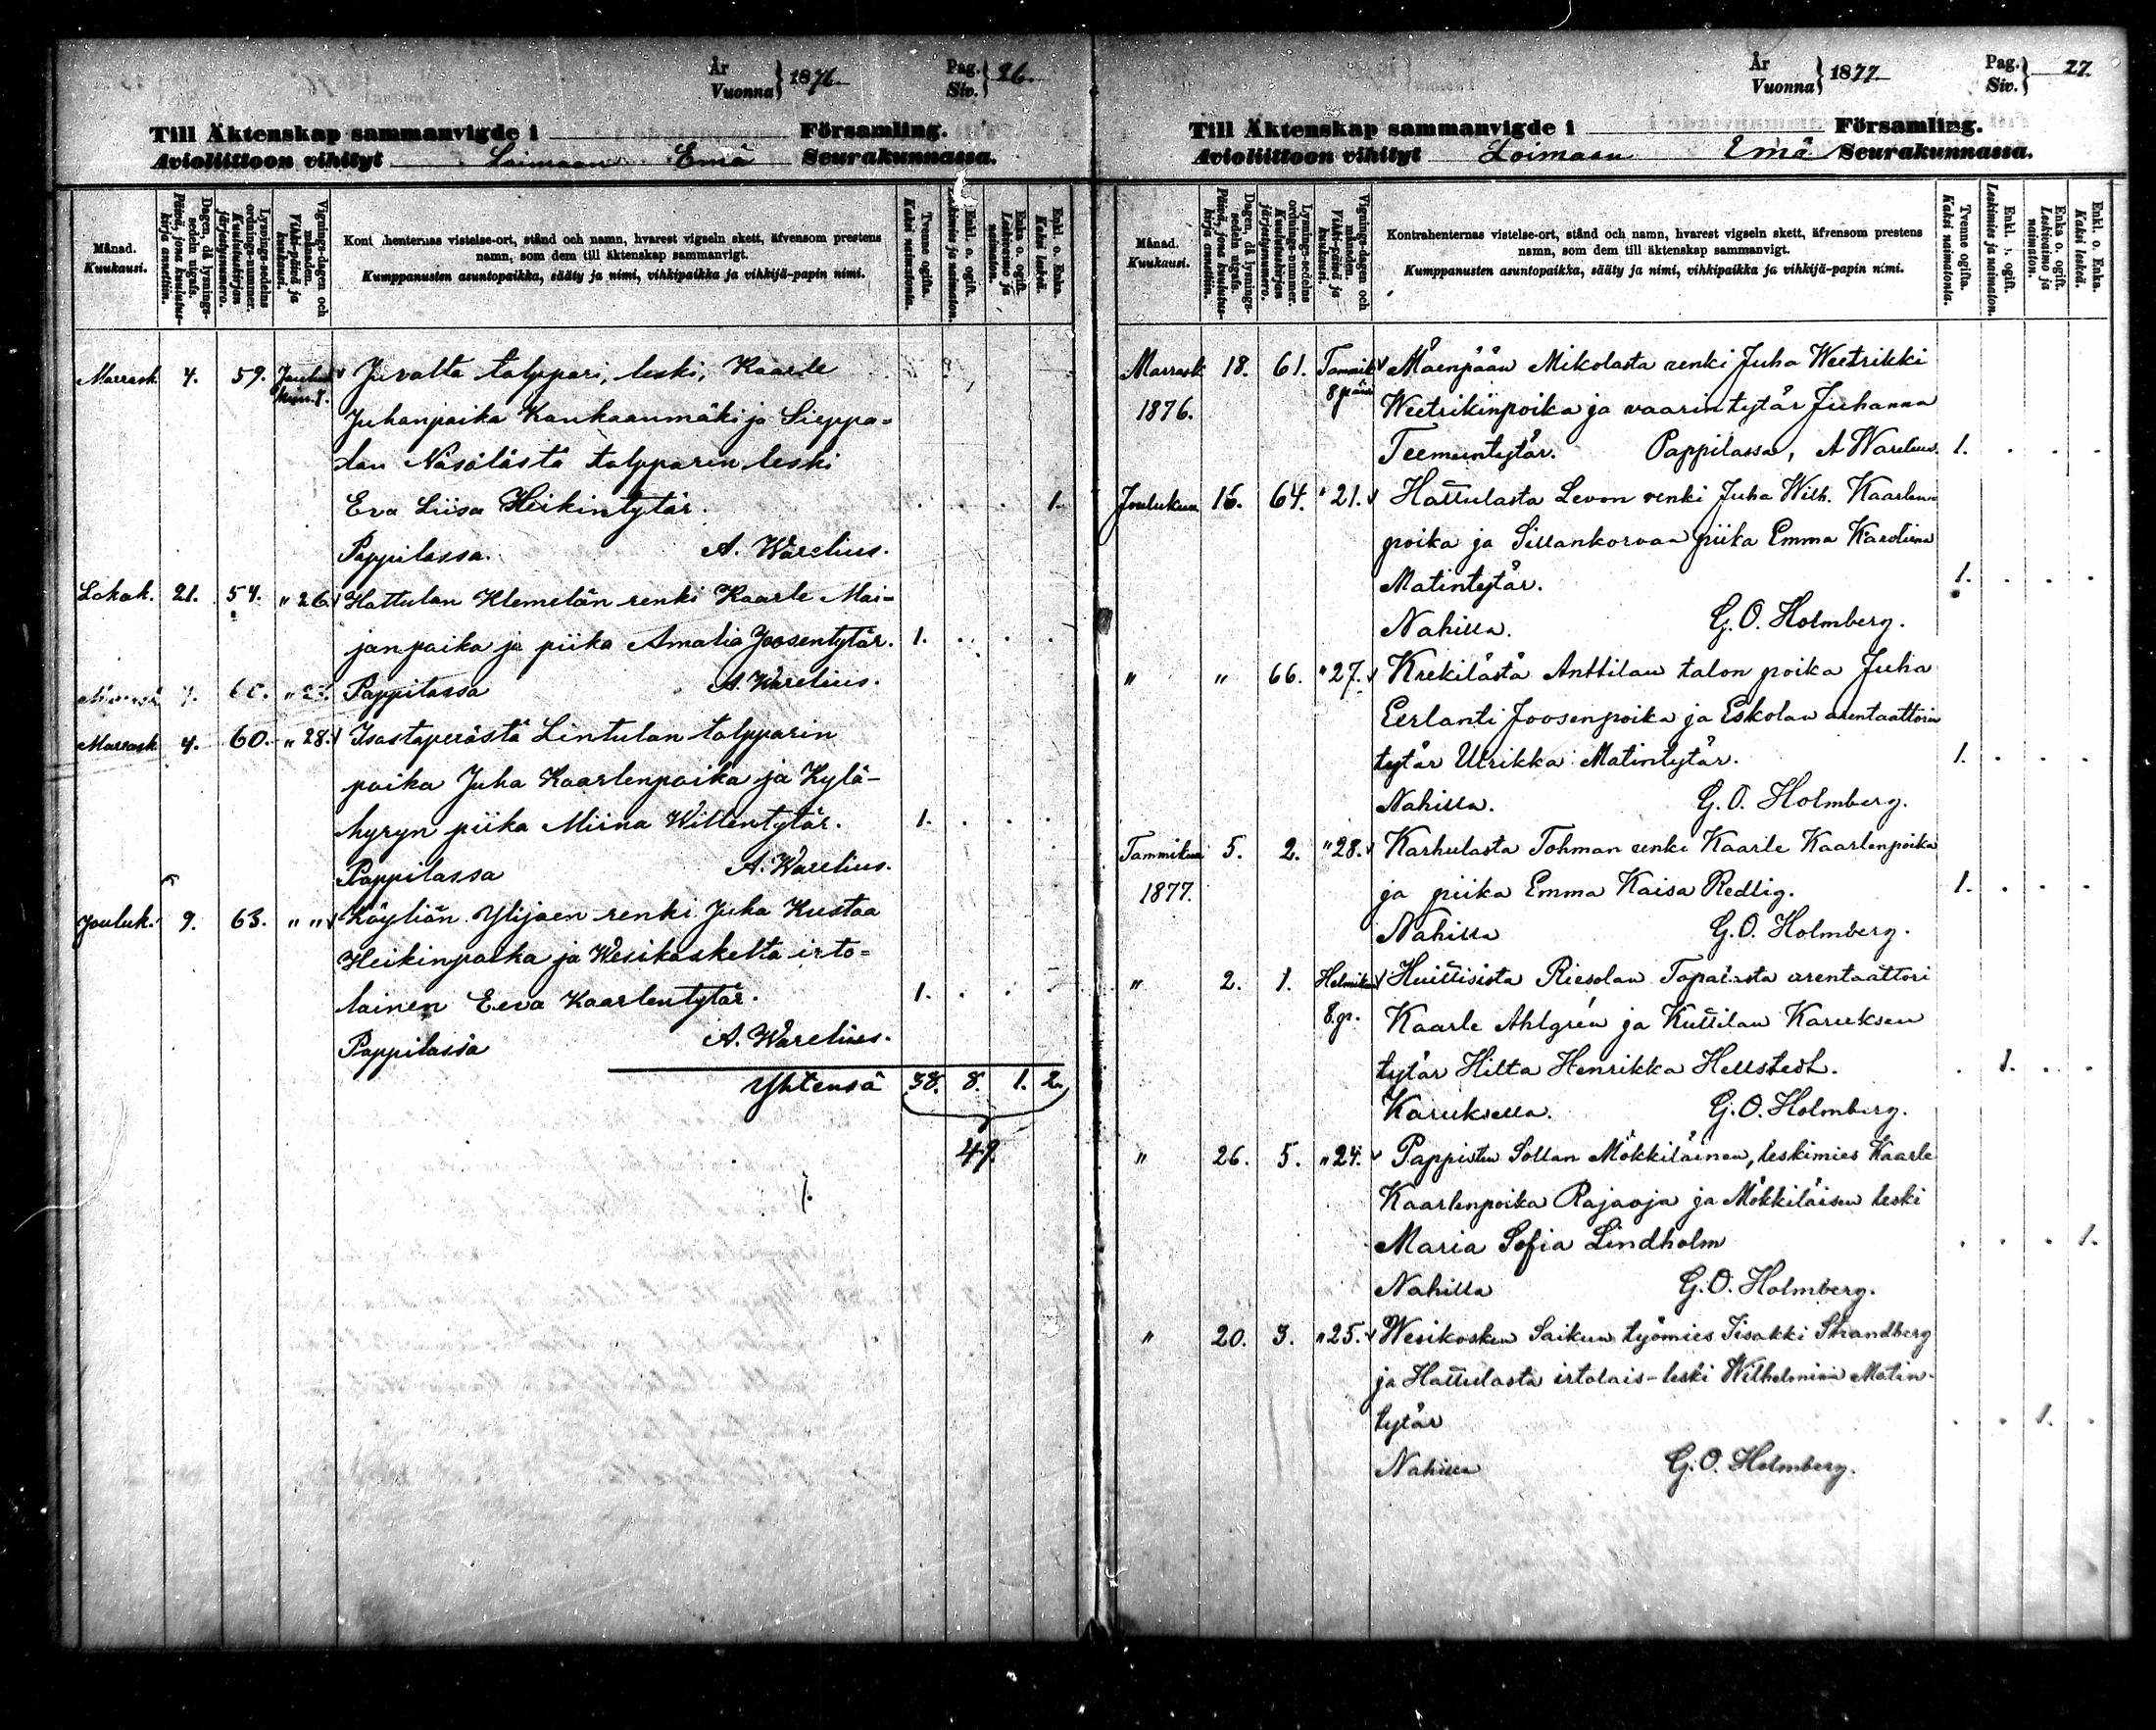 År
Vuonna } 1876
Pag.
Siv. } 26.
Till Äktenskap sammanvigde i Församling.
Avioliittoon vihityt Loimaan Emä Seurakunnassa.
Månad. Kuukausi.
Dagen, då lysnings-sedeln utgafs. Päivä, jona kuulutus-kirja annettiin.
Lysnings-sedelns ordnings-nummer. Kuulutuskirjan järjestysnumero.
Vignings-dagen och månaden. Vihki-päivä ja kuukausi.
Kont henternas vistelse-ort, stånd och namn, hvarest vigseln skett, äfvensom prestens
namn, som dem till äktenskap sammanvigt.
Kumppanusten asuntopaikka, sääty ja nimi, vihkipaikka ja vihkijä-papin nimi.
Tvenne ogifta. Kaksi naimatonta.
Enkl. o. ogift. Leskimies ja naimaton.
Enka o. ogift. Leskivaimo ja naimaton.
Enkl. o. Enka. Kaksi leskeä.
Marrask 4. 59. Jouluk. 8. Juvalta talppari, leski, Kaarle
Juhanpoika Kankaanmäki ja Sieppa-
lan Näsälästä talpparin leski
Eva Liisa Heikintytär. . . . 1.
Pappilassa. A. Warelius.
Lokak. 21. 54. " 26. Hattulan Klemelän renki Kaarle Mai-
janpoika ja piika Amalia Joosentytär. 1. . . .
4. 60. Pappilassa A. Warelius.
Marrask 4. 60. " 28. Isostaperästä Lintulan talpparin
poika Juha Kaarlenpoika ja Kylä-
hyryn piika Miina Willentytär. 1. . . .
Pappilassa A. Warelius.
Jouluk. 9. 63. " " Köyliän Ylijaen renki Juha Kustaa
Heikinpoika ja Wesikoskelta irto-
lainen Eeva Kaarlentytär. 1. . . .
Pappilassa A. Warelius.
Yhteensä 38. 8. 1. 2.
49.
År
Vuonna } 1877
Pag.
Siv. } 27.
Till Äktenskap sammanvigde i Församling.
Avioliittoon vihityt Loimaan Emä Seurakunnassa.
Månad. Kuukausi.
Dagen, då lysnings-sedeln utgafs. Päivä, jona kuulutus-kirja annettiin.
Lysnings-sedelns ordnings-nummer. Kuulutuskirjan järjestysnumero.
Vignings-dagen och månaden. Vihki-päivä ja kuukausi.
Kontrahenternas vistelse-ort, stånd och namn, hvarest vigseln skett, äfvensom prestens
namn, som dem till äktenskap sammanvigt.
Kumppanusten asuntopaikka, sääty ja nimi, vihkipaikka ja vihkijä-papin nimi.
Tvenne ogifta. Kaksi naimatonta.
Enkl. o. ogift. Leskimies ja naimaton.
Enka o. ogift. Leskivaimo ja naimaton.
Enkl. o. Enka. Kaksi leskeä.
Marrask 18. 61. Tammik Mäenpään Mikolasta renki Juha Weetrikki
1876. 8 päiv Weetrikinpoika ja vaarintytär Juhanna
Teemuntytär. Pappilassa, A Warelius. 1. . . .
Joulukuu 16. 64. " 21. Hattulasta Levon renki Juha Wilh. Kaarlen-
poika ja Sillankorvan piika Emma Karoliina
Matintytär. 1. . . .
Nahilla. G.O. Holmberg.
" " 66. " 27. Krekilästä Anttilan talon poika Juha
Eerlanti Joosenpoika ja Eskolan arentaattorin
tytär Ulrikka Matintytär. 1. . . .
Nahilla. G.O. Holmberg.
Tammikuu 5. 2. " 28. Karhulasta Tohman renki Kaarle Kaarlenpoika
1877. ja piika Emma Kaisa Redlig. 1. . . .
Nahilla G.O. Holmberg.
" 2. 1. Helmikuu Huittisista Riesolan Topalasta arentaattori
8. p. Kaarle Ahlgrén ja Kuttilan Karuksen
tytär Hilta Henrikka Hellstedt. . 1. . .
Karuksella. G.O. Holmberg.
" 26. 5. " 24. Pappisten Sollan Mökkiläinen, leskimies Kaarle
Kaarlenpoika Rajaoja ja Mökkiläisen leski
Maria Sofia Lindholm . . . 1.
Nahilla G.O. Holmberg.
" 20. 3. " 25. Wesikosken Saikun työmies Iisakki Strandberg
ja Hattulasta irtolais-leski Wilhelmiina Matin-
tytär . . 1. .
Nahilla G.O. Holmberg.